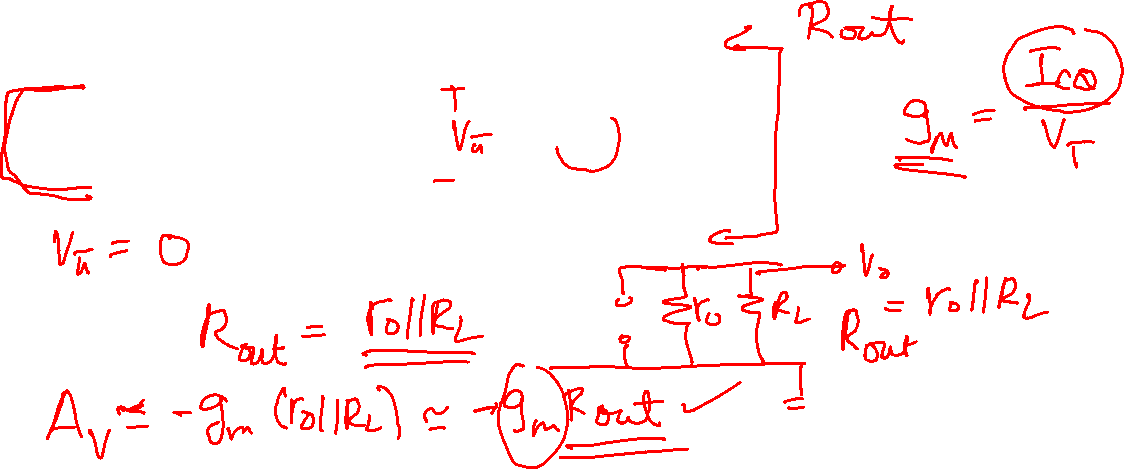 Rout
gm = ICQ / VT
+
Vπ
−
Vπ = 0
Vo
ro RL
Rout = ro||RL
Rout = ro||RL
Av ≃ -gm (ro||RL) ≃ -gm Rout ✓